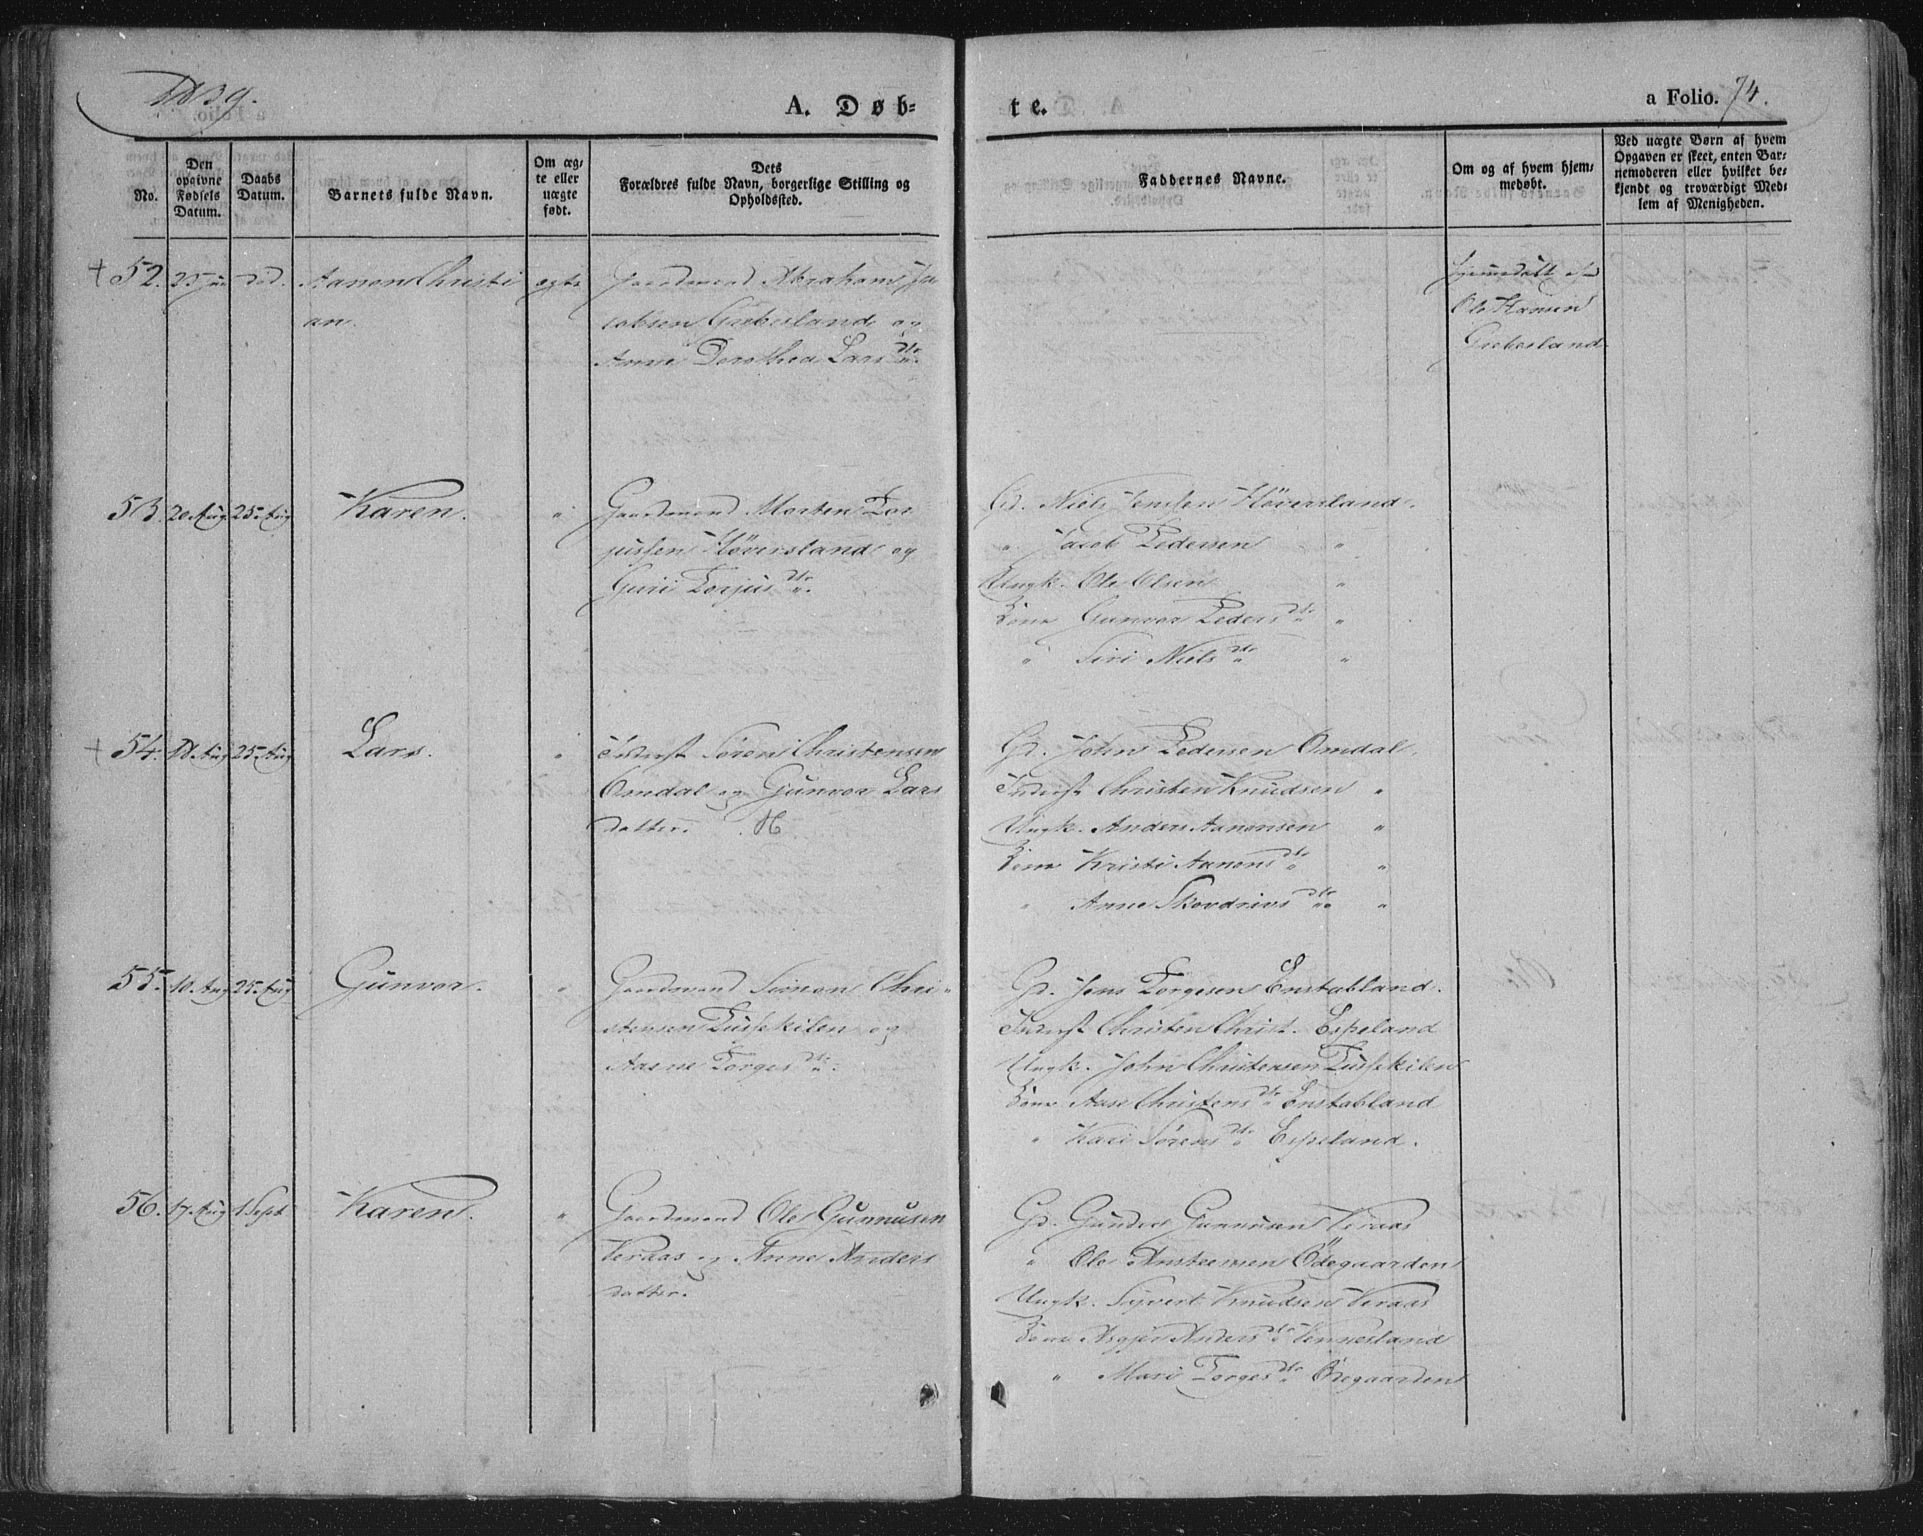 1839.
A. Døb-
te.
a Folio. 74.
No.
Den opgivne Fødsels Datum.
Daabs Datum.
Barnets fulde Navn.
Om æg-
te eller
uægte
født.
Dets
Forældres fulde Navn, borgerlige Stilling og
Opholdssted.
Faddernes Navne.
Om og af hvem hjem-
medøbt.
Ved uægte Børn af hvem
Opgaven er skeet, enten Bar-
nemoderen eller hvilket be-
kjendt og troværdigt Med-
lem af Menigheden.
+ 52. 25 dod. Aanon Christi ægte Gaardmand Abraham Ja
an. cobsen Gieberland og
Anne Dorothea Lars dtr.
Hjemmedøbt af
Ole Hansen
Gieberland
53. 20 Aug 25 Aug Karen. " Gaardmand Morten Tor
jussen Høversland og
Guri Torjus dtr.
Gd. Niels Jensen Høversland.
" Jacob Pedersen "
Ungk. Ole Olsen "
Kone Gunvor Peders dtr "
" Siri Niels dtr "
+ 54. 18 Aug 25 Aug Lars. " Inderst Søren Christensen
Omdal og Gunvor Lars
datter.
Gd. John Pedersen Omdal.
Inderst Christen Knudsen "
Ungk. Anders Aanonsen "
Kone Kristi Aanons dtr "
" Anne Skovdrivs dtr "
55. 10. Aug 25. Aug Gunvor. " Gaardmand Simon Chri-
stensen Tusskilen og
Aasne Torges dtr.
Gd. Jens Torgesen Enstabland.
Inderst Christen Christ. Espeland
Ungk. John Christensen Tusskilen
Kone Aase Christens dtr Enstabland
" Kari Sørens dtr Espeland.
56. 17 Aug 1 Sept Karen. " Gaardmand Ole Gunnusen
Veraas og Anne Anders
datter.
Gd. Gunder Gunnusen Veraas
" Ole Ansteensen Ödegaarden
Ungk. Syvert Knudsen Veraas
Kone Asgjer Anders dtr Vennesland
" Mari Torges dtr Ödegaarden